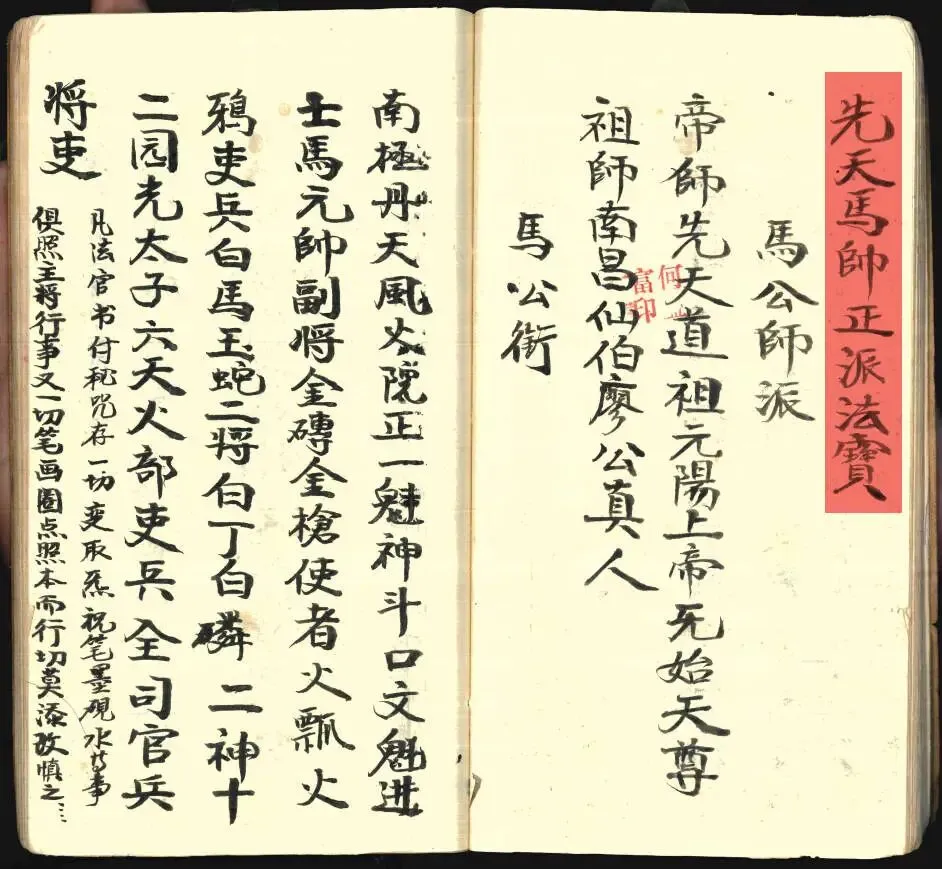 先天馬帥正派法寶
馬公師派
帝師先天道祖元陽上帝死始天尊
祖師南昌仙伯廖公真人
馬公銜
南極丹天風火院正一魁神斗口文魁进
士馬元帥副将金磚金槍使者火瓢火
鴉吏兵白馬玉蛇二将白丁白磷二神十
二园光太子六天火部吏兵全司官兵
将吏
凡法官书付秘咒存一切变取炁祝笔墨硯水等事
俱照主将行事又一切笔画圈点照本而行切莫添改慎之
何
富印